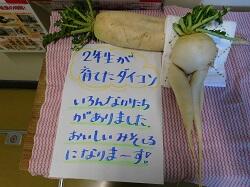 2年生が
育てたダイコン
いろんなかたち
がありました。
おいしいみそしる
になりまーす!